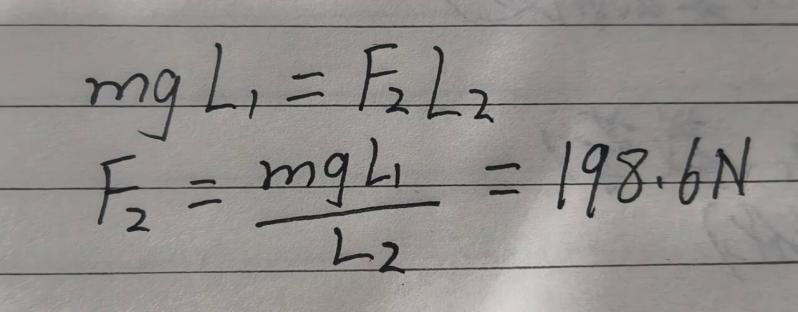 mgL₁ = F₂L₂
F₂ = mgL₁/L₂ = 198.6N